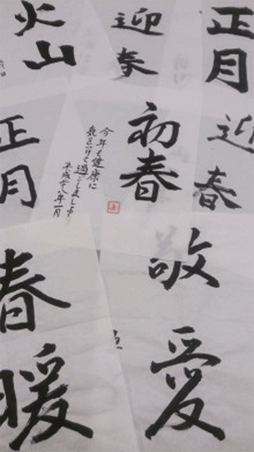 火山
迎春
正月
正月
初春
今年も健康に
気をつけて過ごしましょう
平成廿八年一月
迎春
敬愛
春暖